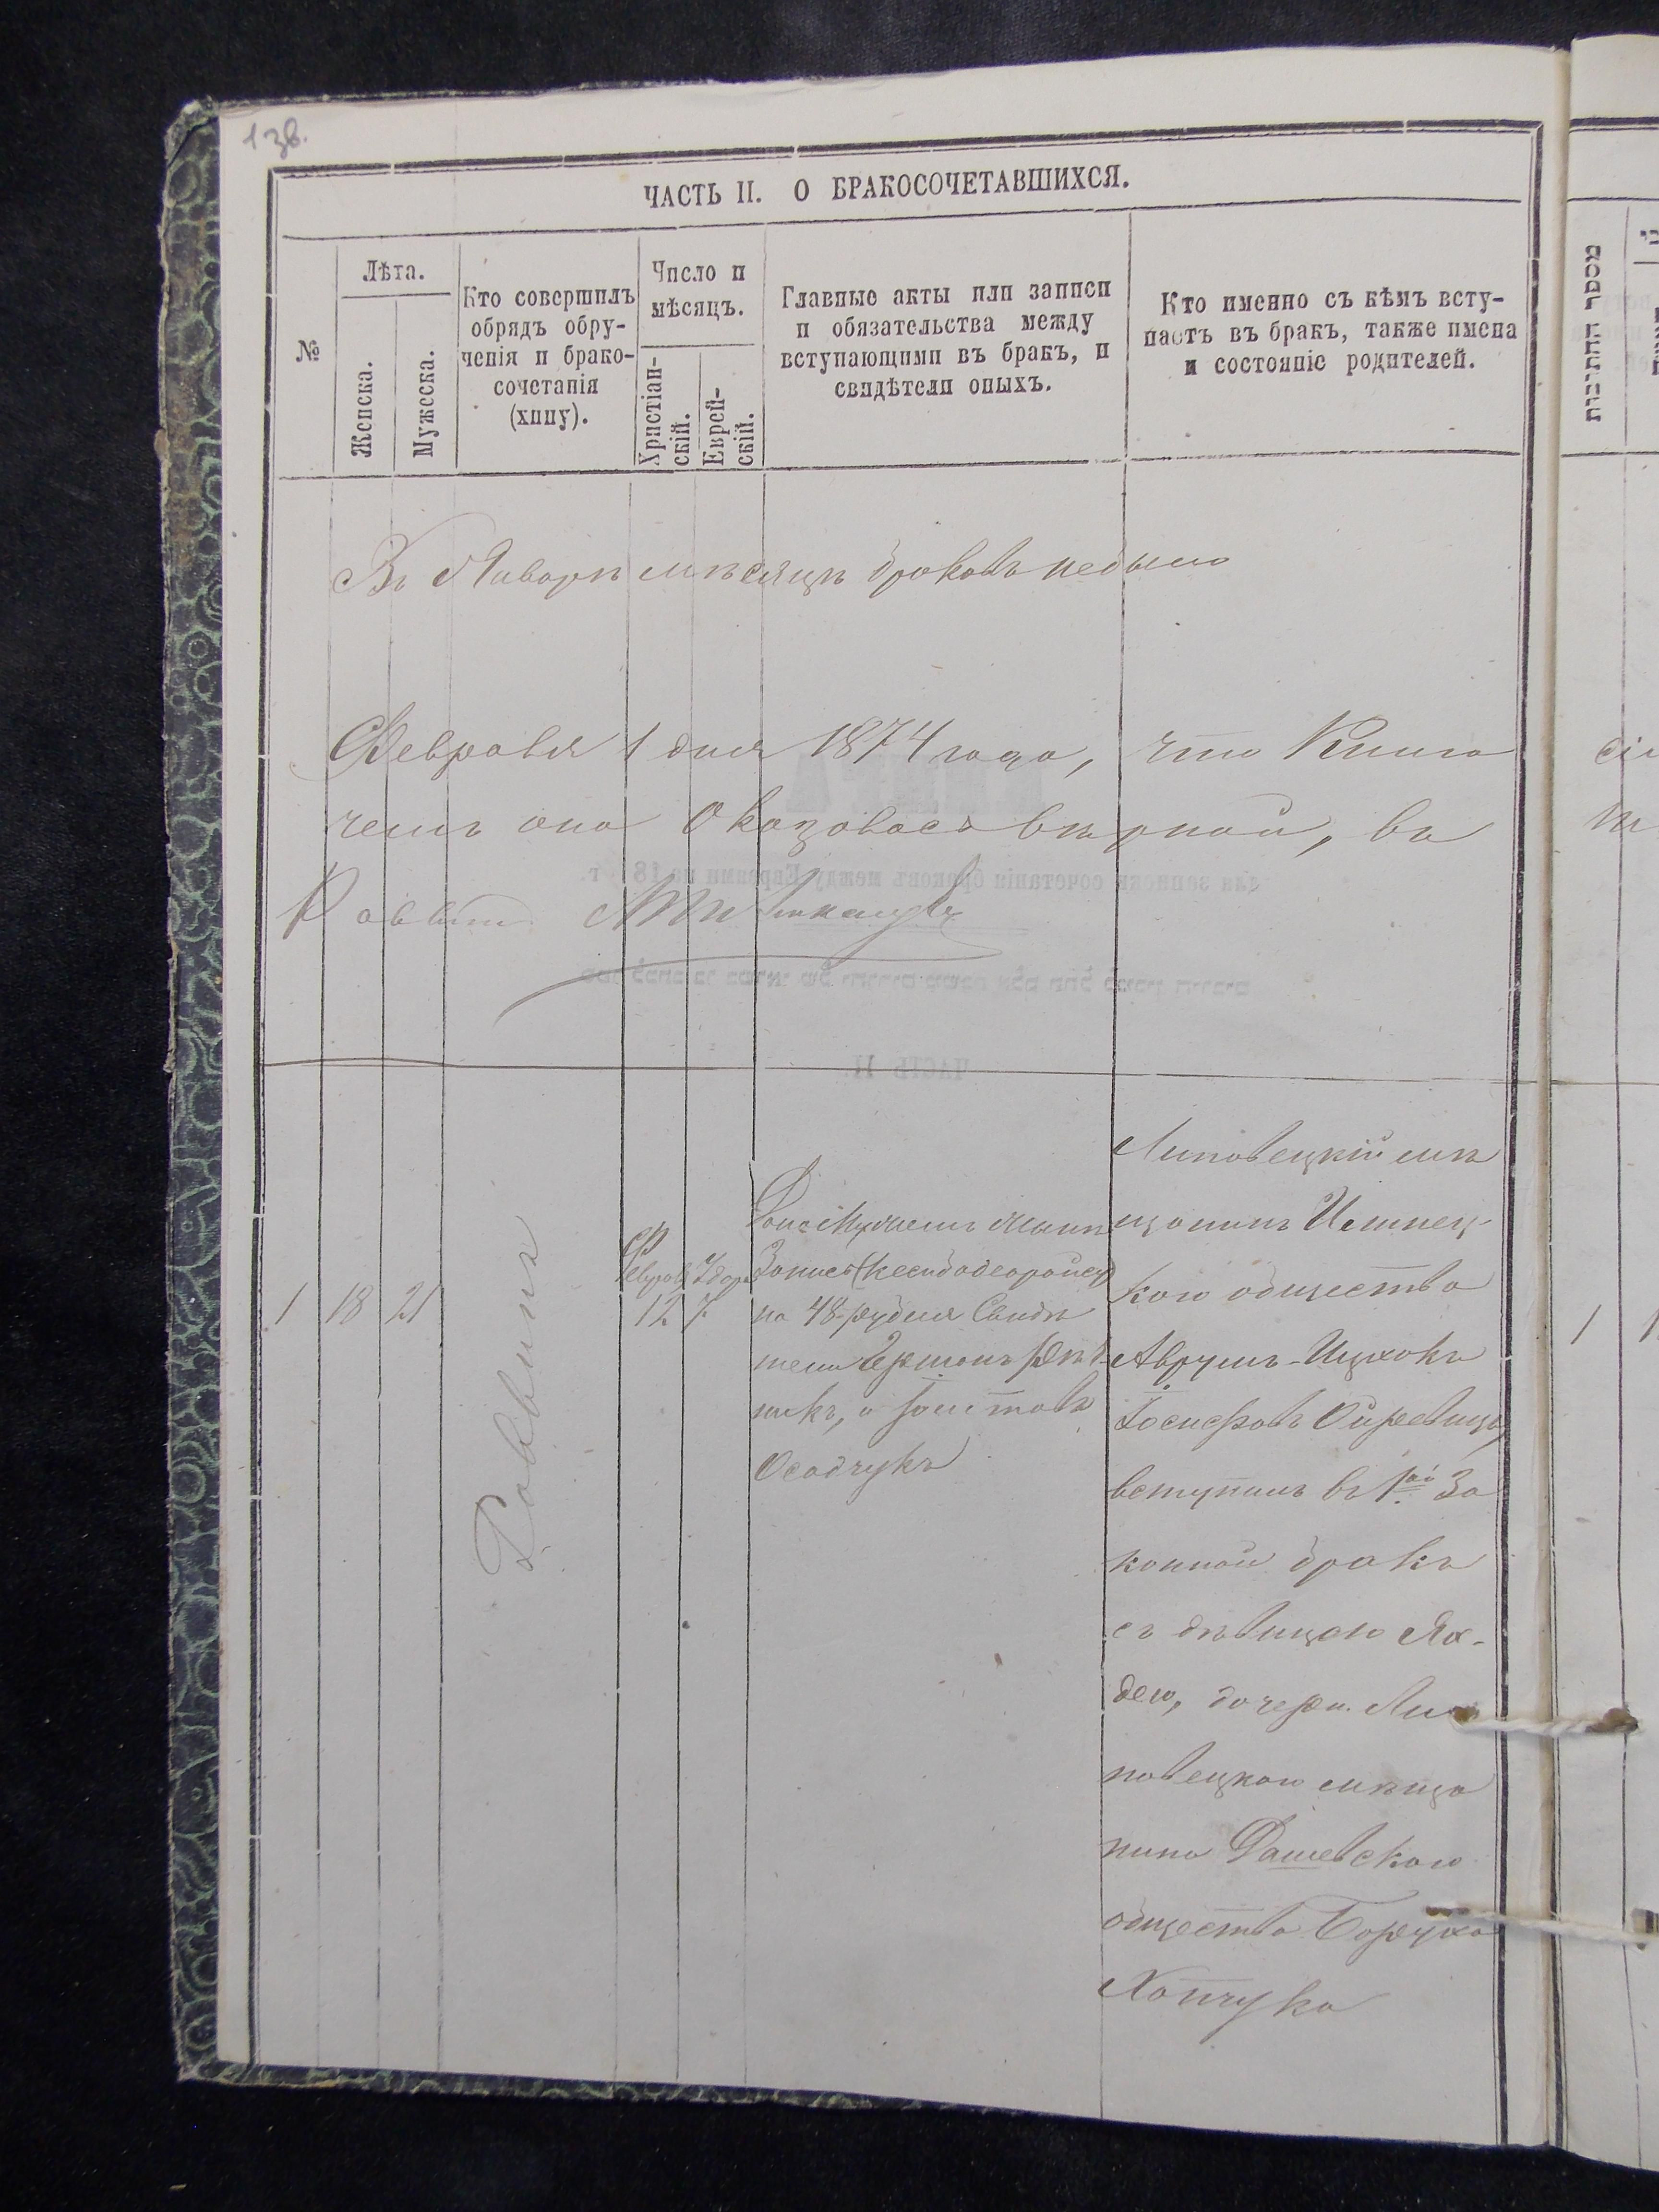 1 зв.
ЧАСТЬ II. О БРАКОСОЧЕТАВШИХСЯ.
№
Лѣта.
Женска.
Мужеска.
Кто совершилъ
обрядъ обру-
ченія и брако-
сочетанія
(хипу).
Число и
мѣсяцъ.
Христіан-
скій.
Еврей-
скій.
Главные акты или записи
и обязательства между
вступающими въ бракъ, и
свидѣтели оныхъ.
Кто именно съ кѣмъ всту-
паетъ въ бракъ, также имена
и состояніе родителей.
Въ Январѣ мѣсяцѣ браковъ небыло
Февраля 1 дня 1874 года, что Книга
чемъ она Оказовась вѣрной, въ
Раввин
1
18
21
Раввинъ
Феврал
12
Адор
7
Запись
на 48 рубля Свидѣ
тели Гершонъ
никъ, и
Осадчукъ
Липовецкій мѣ
щанинъ Илинец-
кого общества
Аврумъ-Ицхокъ
Іосифовъ
вступилъ въ 1ой За
конной бракъ
съ дѣвицею Ях-
дею, дочери Ли
повецкого мѣща
нина Дашевского
общества Боруха
Хапчука
1